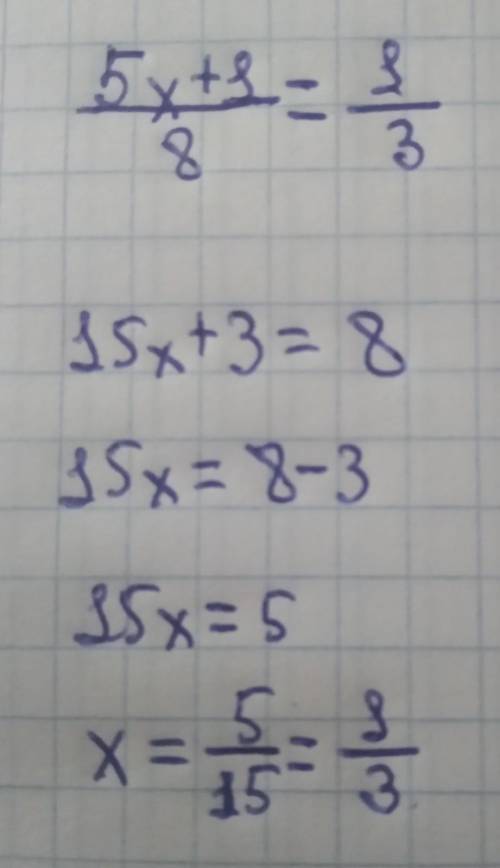 (5x+1)/8 = 1/3
15x+3 = 8
15x = 8-3
15x = 5
x = 5/15 = 1/3